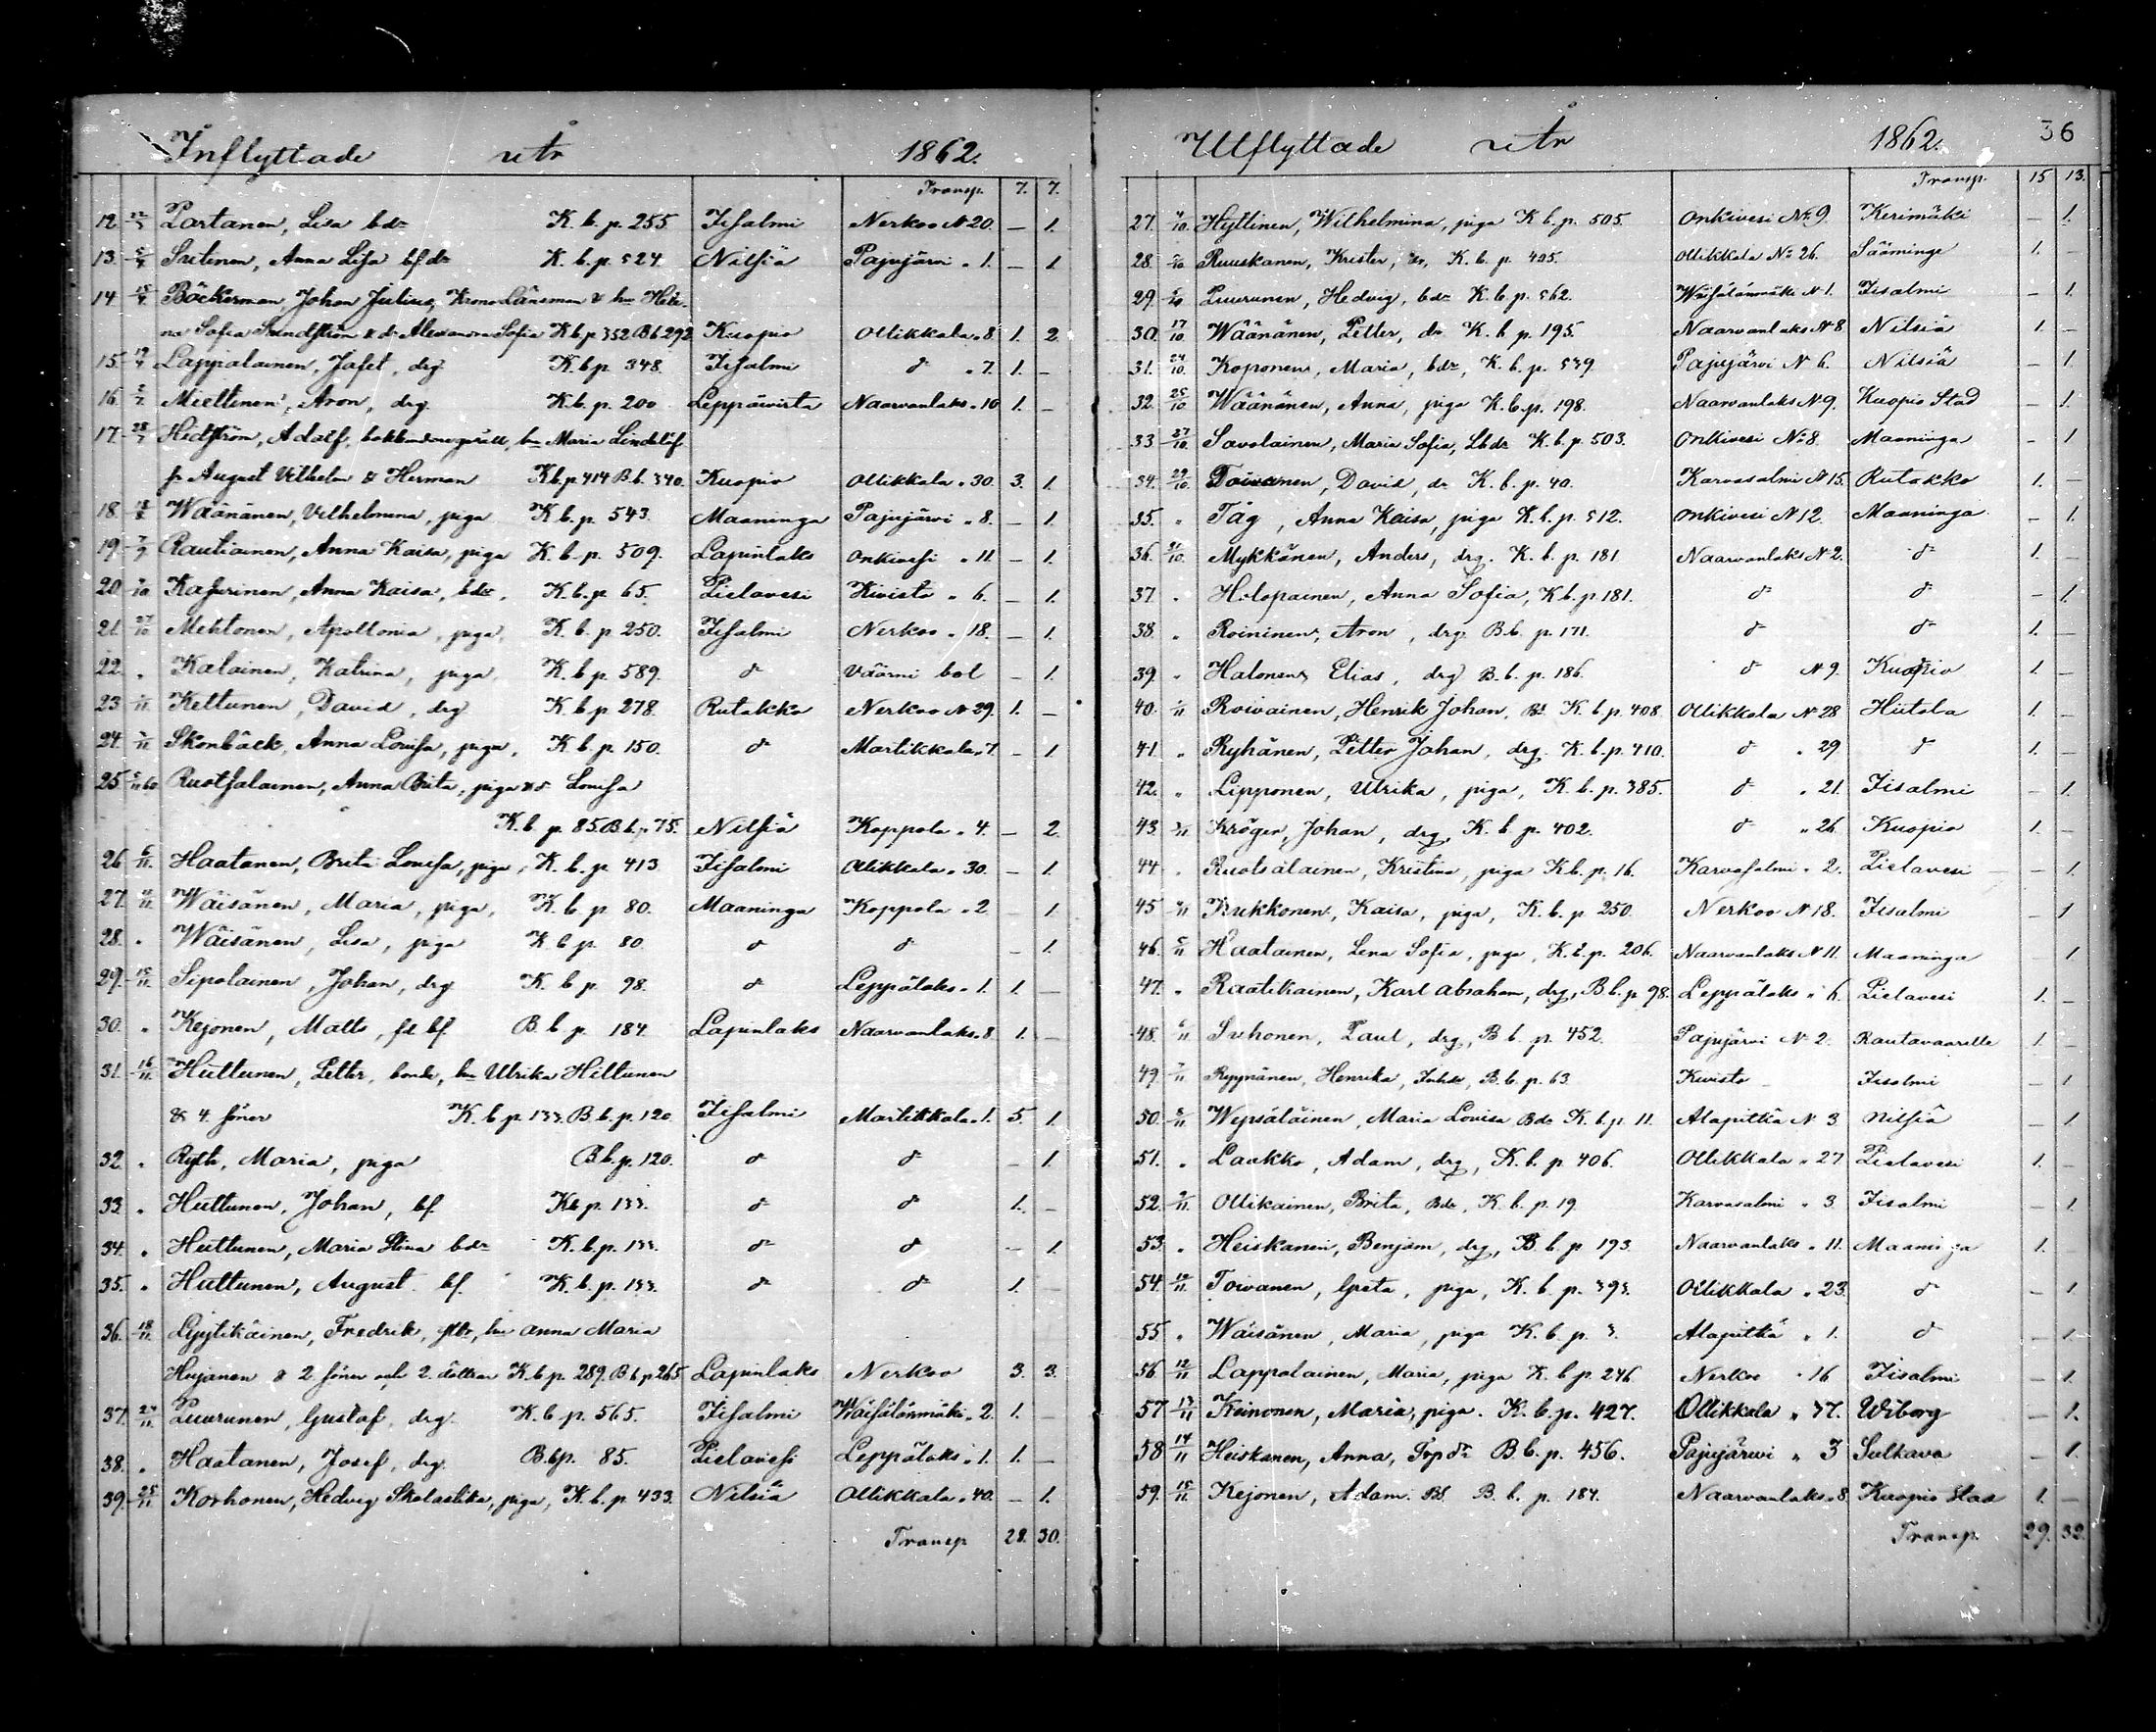 Inflyttade år 1862.
Transp. 7. 7.
12. Partanen, Lisa bdr K. b. p. 255. Iisalmi Nerkoo № 20. — 1.
13. Saitinen, Anna Lisa bfdr K. b. p. 524. Nilsiä Pajujärvi „ 1. — 1.
14 Böckerman Johan Julius, Krono Länsman & hu Hele-
na Sofia Sundström & dr Alexandra Sofia K b p 352 B b 292 Kuopio Ollikkala „ 8. 1. 2.
15. Lappalainen, Jafet, drg K b p 348. Iisalmi d „ 7. 1. —
16. Miettinen, Aron, drg. K. b. p. 200 Leppävirta Naarvanlaks „ 10 1. —
17. Hedström, Adolf, hu Maria Lindelöf
sr August Vilhelm & Herman K b p 414 B. b. 340. Kuopio Ollikkala „ 30. 3. 1.
18. Wäänänen, Vilhelmina, piga K. b. p. 543. Maaninga Pajujärvi „ 8. — 1.
19. Rautiainen, Anna Kaisa, piga K. b. p. 509. Lapinlaks Onkivesi „ 11. — 1.
20. Kasurinen, Anna Kaisa, bdr, K. b. p. 65. Pielavesi Kivistö „ 6. — 1.
21. 27/10 Mehtonen, Apollonia, piga, K. b. p. 250. Iisalmi Nerkoo „ 18. — 1.
22. „ Kalainen, Katrina, piga, K. b. p. 589. d Väärni bol — 1.
23. Kettunen, David, drg K. b p 278. Rutakko Nerkoo № 29. 1. —
24. Skönbäck, Anna Lovisa, piga, K. b. p. 150. d Martikkala „ 7. — 1.
25. Ruotsalainen, Anna Brita, piga & dr Lovisa
K. b. p. 85. B. b. p. 75. Nilsiä Koppola „ 4. — 2.
26. 6/11. Haatanen, Brita Lovisa, piga, K. b. p. 413. Iisalmi Ollikkala „ 30. — 1.
27. Wäisänen, Maria, piga, K. b. p. 80. Maaninga Koppola „ 2 — 1.
28. „ Wäisänen, Lisa, piga K. b p. 80. d d — 1.
29. 15/11. Sipolainen, Johan, drg K. b p. 98. d Leppälaks „ 1. 1. —
30. „ Kejonen, Matts, fd bf. B. b. p. 184. Lapinlaks Naarvanlaks „ 8 1. —
31. 16/11. Huttunen, Petter, bonde, hu Ulrika Hiltunen
& 4. söner K. b. p. 133. B. b. p. 120. Iisalmi Martikkala „ 1. 5. 1.
32. „ Ryth, Maria, piga B. b. p. 120. d d — 1.
33. „ Huttunen, Johan, bf. K b. p. 133. d d 1. —
34. „ Huttunen, Maria Stina bdr K. b. p. 133. d d — 1.
35. „ Huttunen, August bf. K. b. p. 133. d d 1. —
36. 18/11. Lyytikäinen, Fredrik, hu Anna Maria
Hujanen & 2 söner och 2. döttrar K. b p. 289. B. b p 265 Lapinlaks Nerkoo 3. 3.
37. Puurunen, Gustaf, drg. K. b. p. 565. Iisalmi Wäisälänmäki „ 2. 1. —
38. „ Haatanen, Josef, drg. B. b p. 85. Pielavesi Leppälaks „ 1. 1. —
39. 25/11. Korhonen, Hedvig Skolastika, piga, K. b. p. 433. Nilsiä Ollikkala „ 40. — 1.
Transp 28. 30.
Utflyttade år 1862. 36
Transp. 15 13.
27. Hyttinen, Wilhelmina, piga K. b. p. 505. Onkivesi № 9. Kerimäki — 1.
28. Ruuskanen, Krister, K. b. p. 405. Ollikkala № 26. Sääminge 1. —
29. Puurunen, Hedvig, bdr K. b. p. 562. Wäisälänmäki № 1. Iisalmi — 1.
30. 17/10. Wäänänen, Petter, dr K. b. p. 195. Naarvanlaks № 8 Nilsiä 1. —
31. 24/10. Koponen, Maria, bdr, K. b. p. 539. Pajujärvi № 6. Nilsiä — 1.
32. 25/10. Wäänänen, Anna, piga K. b. p. 198. Naarvanlaks № 9. Kuopio Stad — 1.
33 27/10. Savolainen, Maria Sofia, Lbdr K. b. p. 503. Onkivesi № 8. Maaninga — 1
34. 29/10. Toivanen, David, dr K. b. p. 40. Karvasalmi № 15. Rutakko 1. —
35. „ Täg, Anna Kaisa, piga K. b. p. 512. Onkivesi № 12. Maaninga — 1.
36. 31/10. Mykkänen, Anders, drg. K. b. p. 181. Naarvanlaks № 2. d 1. —
37. „ Holopainen, Anna Sofia, K b. p. 181. d d — 1.
38. „ Roininen, Aron, drg. B. b. p. 171. d d 1. —
39. „ Halonen, Elias, drg B. b. p. 186. d № 9. Kuopio 1. —
40. Roivainen, Henrik Johan, Bf. K. b. p. 408. Ollikkala № 28 Hiitola 1. —
41. „ Ryhänen, Petter Johan, drg. K. b. p. 410. d „ 29. d 1. —
42. „ Lipponen, Ulrika, piga, K. b. p. 385. d „ 21. Iisalmi — 1.
43. Kröger, Johan, drg, K. b. p. 402. d „ 26 Kuopio 1. —
44 „ Ruotsalainen, Kristina, piga K. b. p. 16. Karvasalmi „ 2. Pielavesi — 1.
45 Kukkonen, Kaisa, piga, K. b. p. 250. Nerkoo № 18. Iisalmi — 1
46. 5/11 Haatainen, Lena Sofia, piga, K. b. p. 206. Naarvanlaks № 11. Maaninga 1
47. „ Raatikainen, Karl Abraham, drg, B b. p 98. Leppälaks „ 6. Pielavesi 1. —
48. 6/11 Suhonen, Paul, drg, B b. p. 452. Pajujärvi № 2. Rautavaaralle 1. —
49. 7/11 Ryynänen, Henrika, B. b. p. 63. Kivistö Iisalmi — 1
50. 8/11 Wepsäläinen, Maria Lovisa Bdr K. b. p. 11. Alapitkä № 3. Nilsiä — 1
51. „ Laakko, Adam, drg, K. b. p. 406. Ollikkala „ 27 Pielavesi 1. —
52. 9/11. Ollikainen, Brita, Bdr, K. b. p. 19. Karvasalmi „ 3 Iisalmi — 1.
53. „ Heiskanen, Benjam, drg, B. b. p 193. Naarvanlaks „ 11. Maaninga 1. —
54. Toivanen, Greta, piga, K. b. p. 393. Ollikkala „ 23. d — 1
55. „ Wäisänen, Maria, piga K. b. p. 3. Alapitkä „ 1. d — 1.
56. 12/11 Lappalainen, Maria, piga K. b p. 246. Nerkoo „ 16 Iisalmi — 1.
57 13/11 Kainonen, Maria, piga. K. b. p. 427. Ollikkala „ 37. Wiborg — 1.
58 14/11 Heiskanen, Anna, Trp dr B b. p. 456. Pajujärwi „ 3 Sulkava — 1.
59. 15/11. Kejonen, Adam. Bf. B. b. p. 184. Naarvanlaks „ 8. Kuopio stad 1. —
Transp. 29. 32.